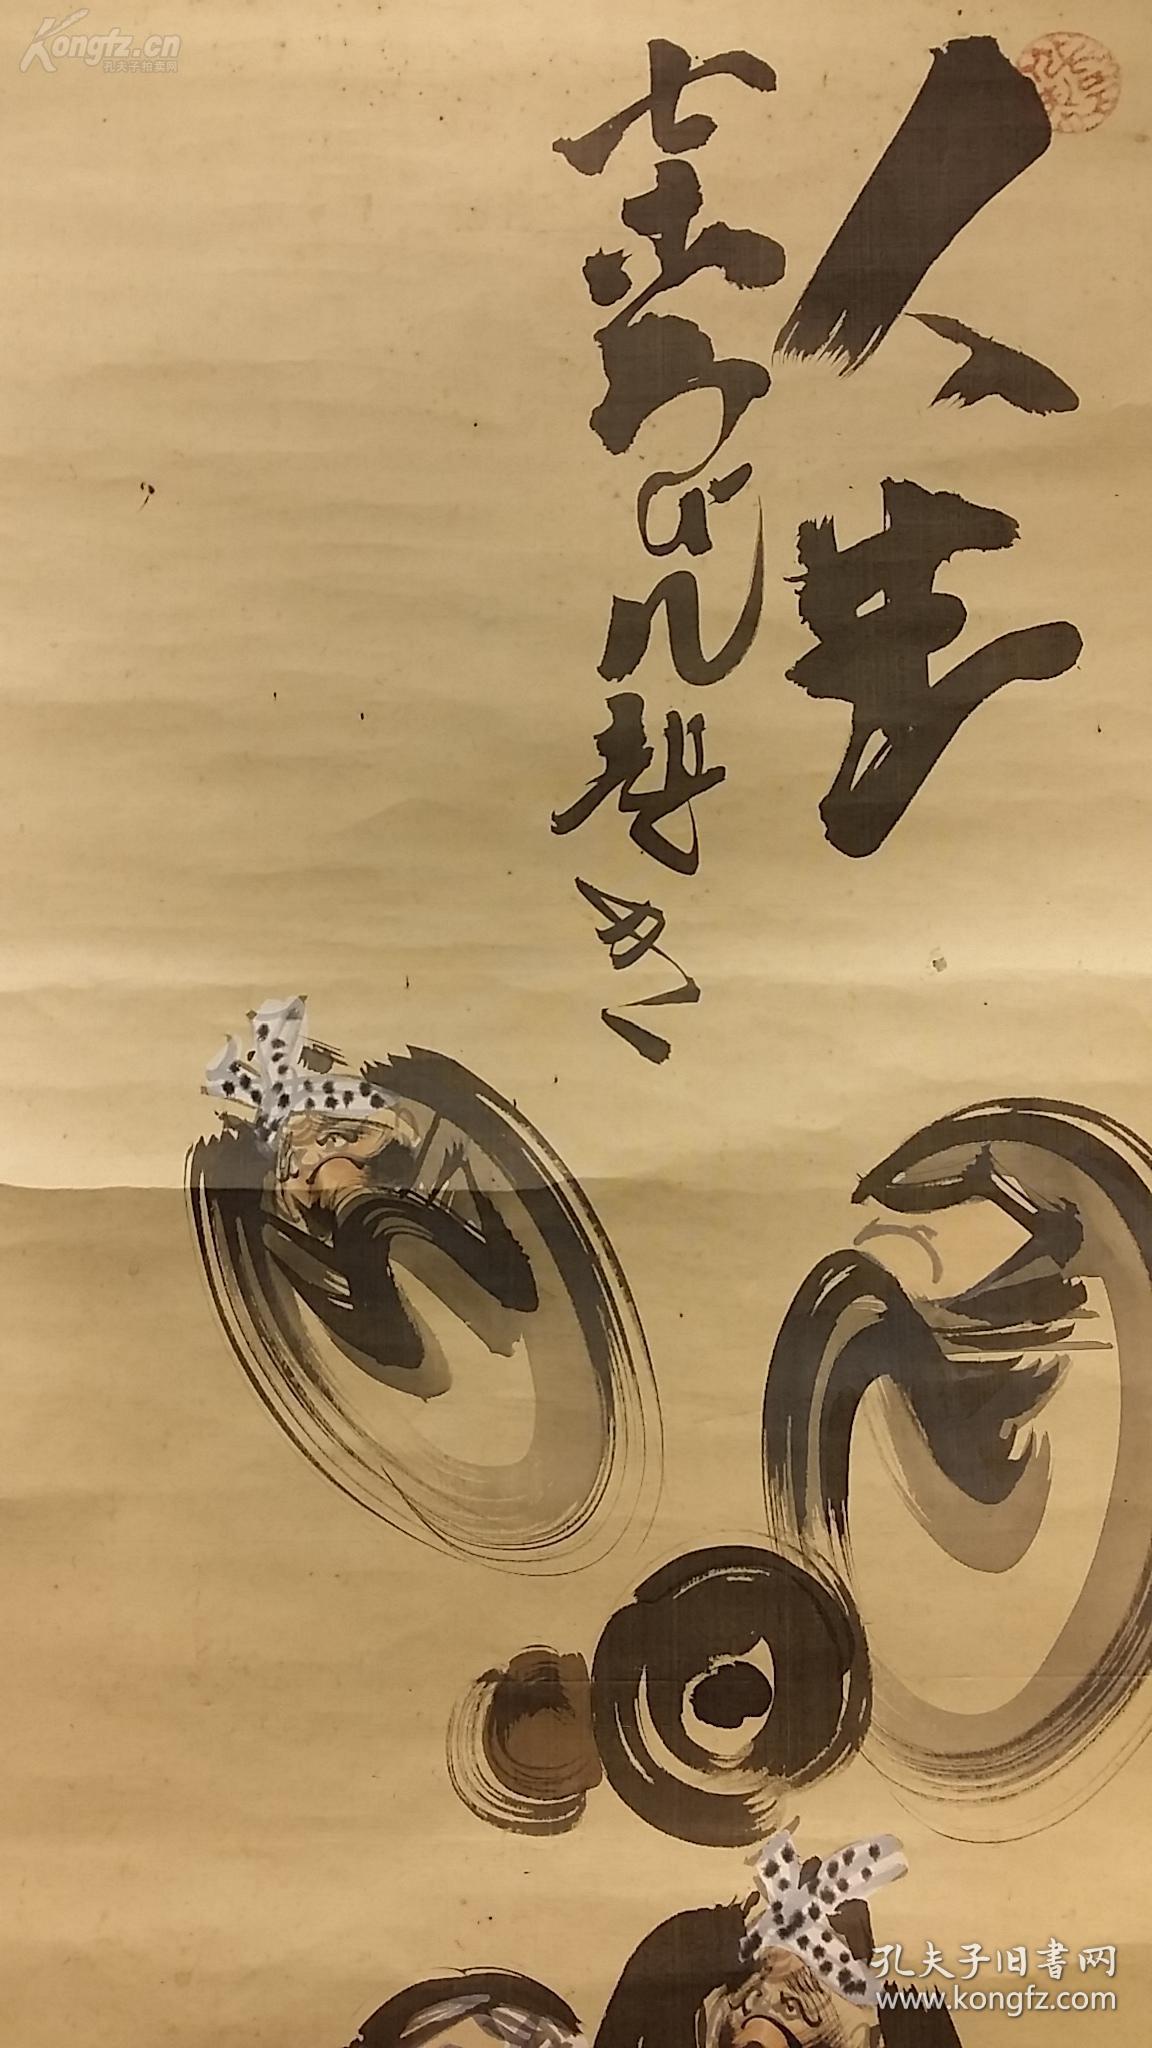 Kongfz.cn
孔夫子拍卖网
人生
七転び八起き
孔夫子旧书网
www.kongfz.com